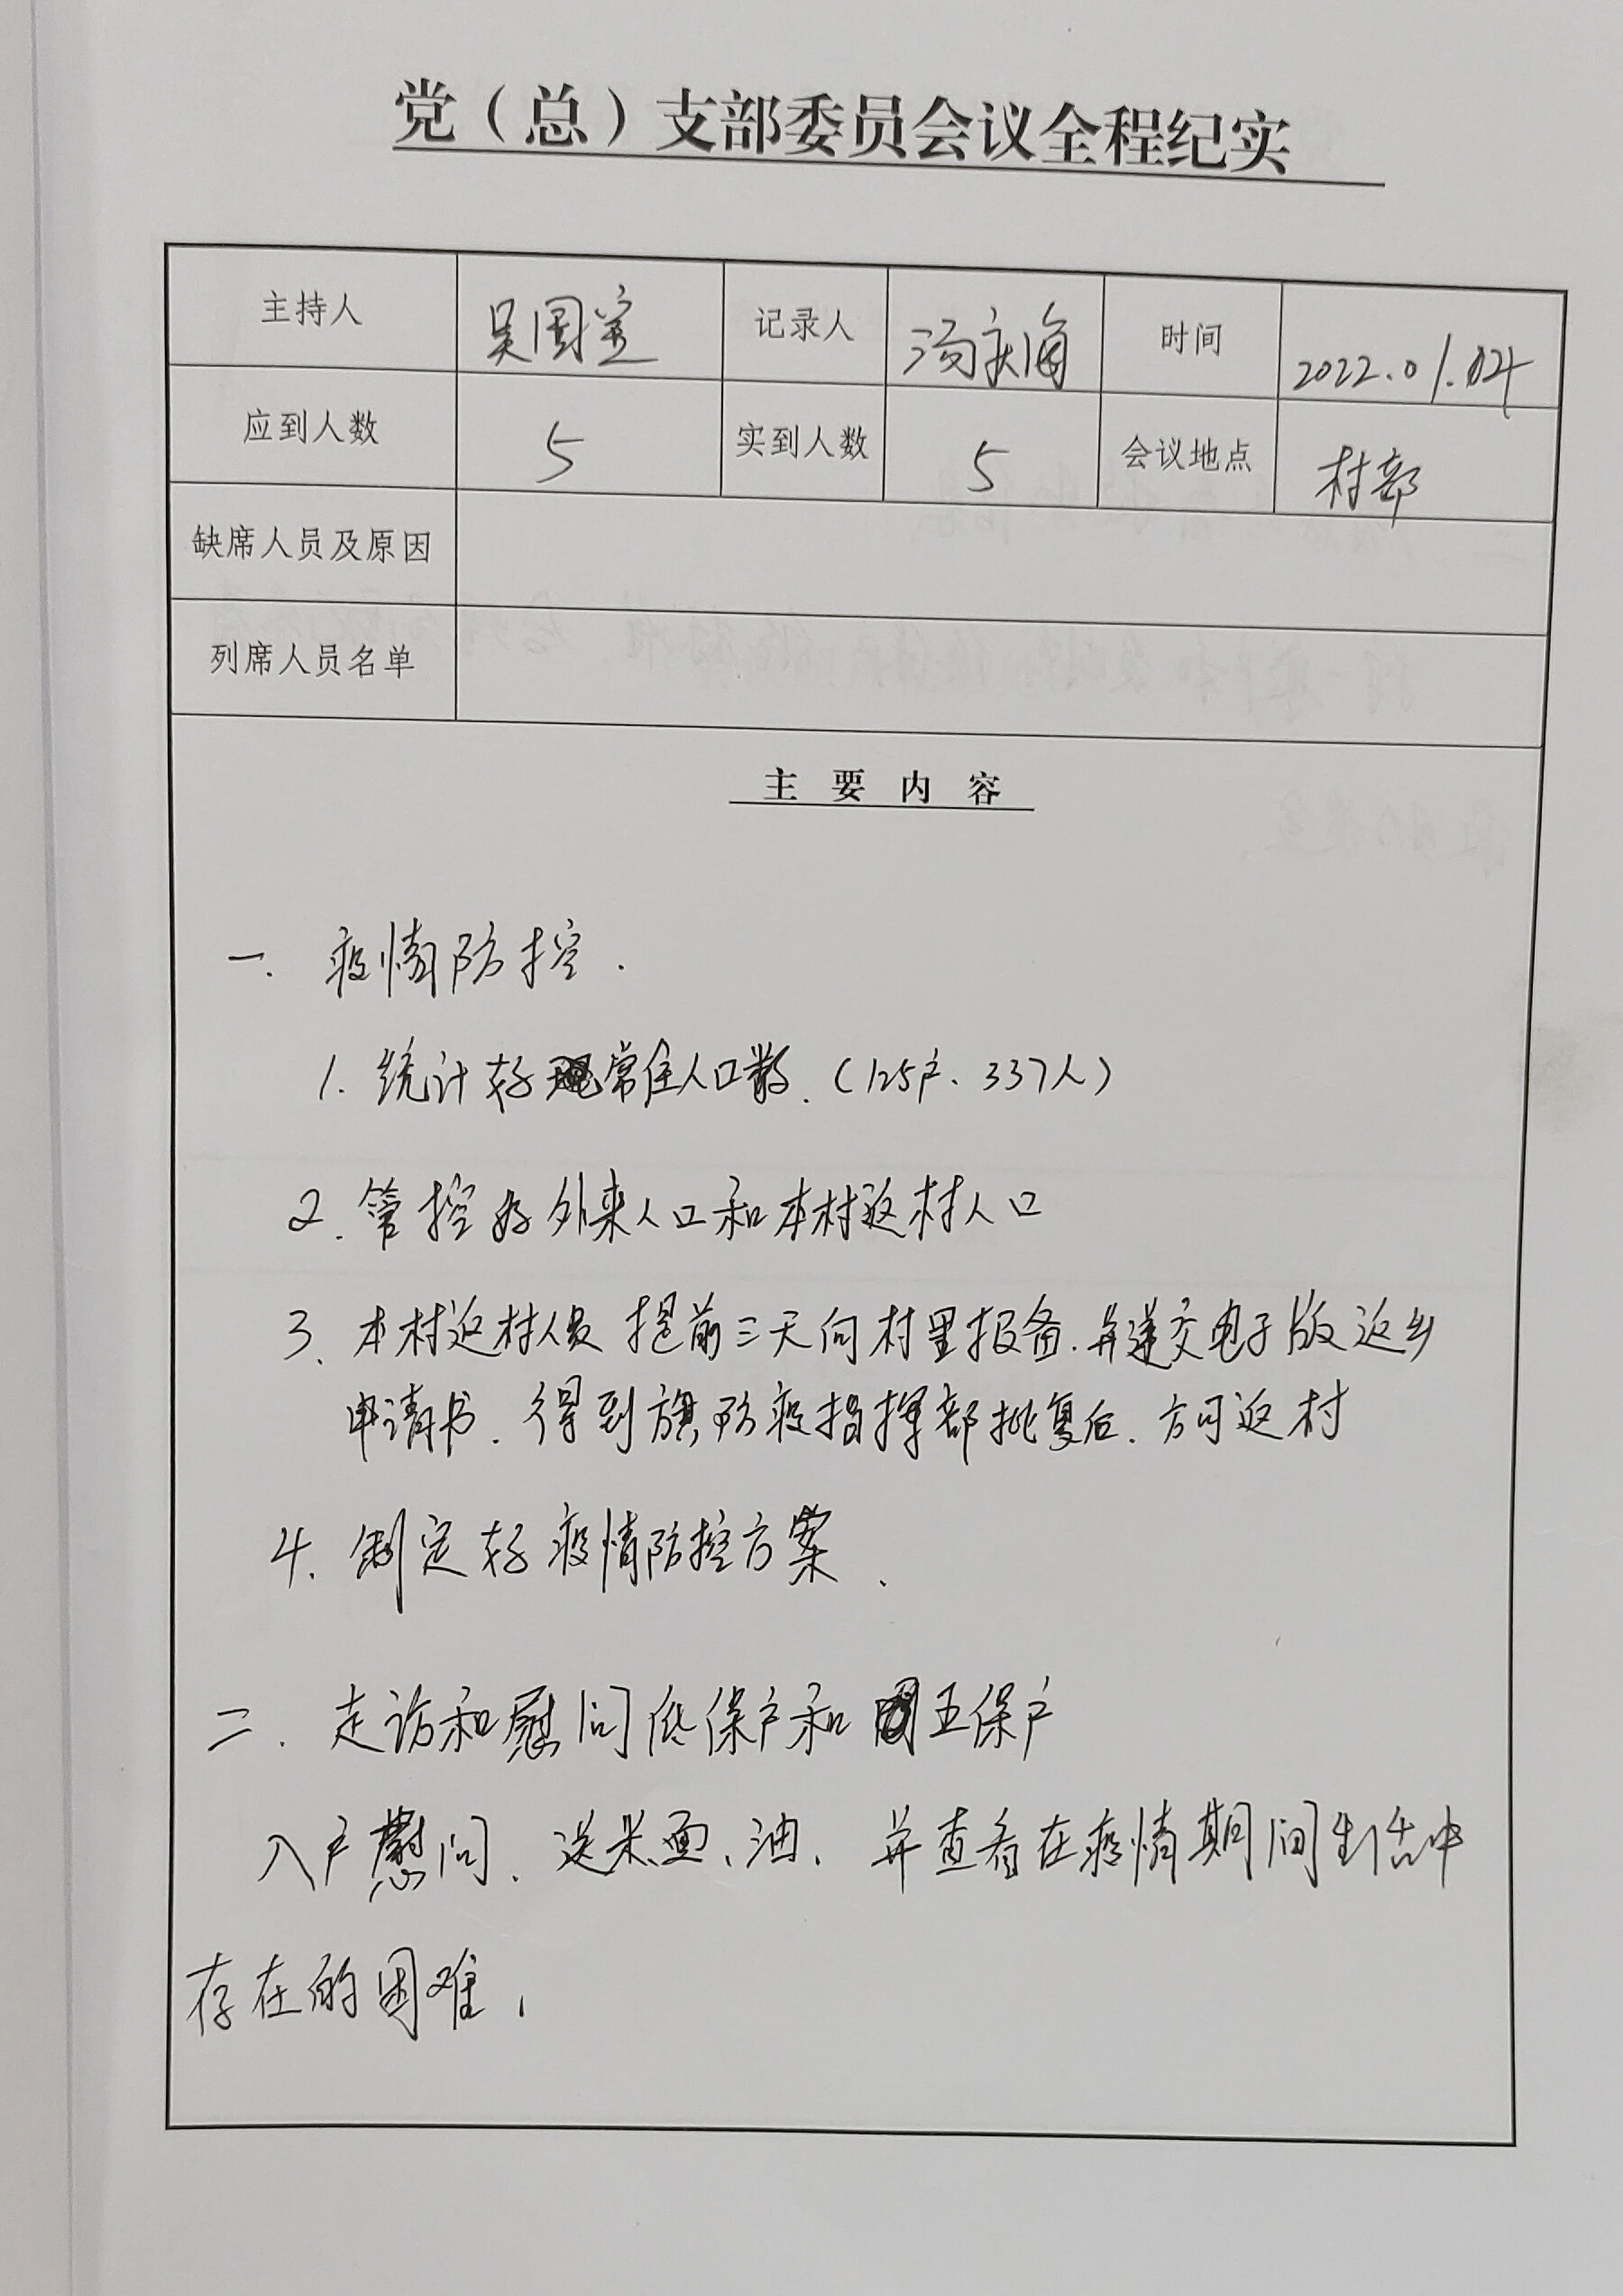 党（总）支部委员会议全程纪实
主持人 吴国 记录人 汤庆海 时间 2022.01.04
应到人数 5 实到人数 5 会议地点 村部
缺席人员及原因
列席人员名单
主要内容
一. 疫情防控.
1. 统计好常住人口数.（125户、337人）
2. 管控好外来人口和本村返村人口
3、本村返村人员提前三天向村里报备.并递交电子版返乡
申请书.得到旗防疫指挥部批复后.方可返村
4、制定好疫情防控方案、
二. 走访和慰问低保户和五保户
入户慰问、送米面、油、并查看在疫情期间生活中
存在的困难,